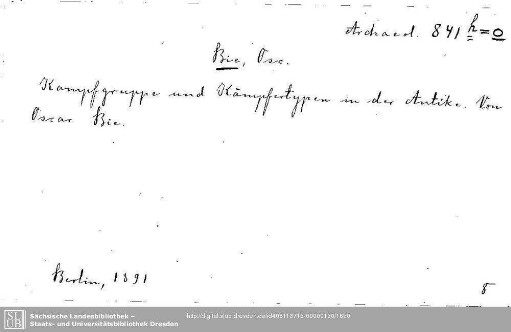 Archaeol. 841 h = 0
Bie, Osc.
Kampfgruppe und Kämpfertypen in der Antike. Von
Oscar Bie.
Berlin, 1891
8
SLUB
Sächsische Landesbibliothek –
Staats- und Universitätsbibliothek Dresden